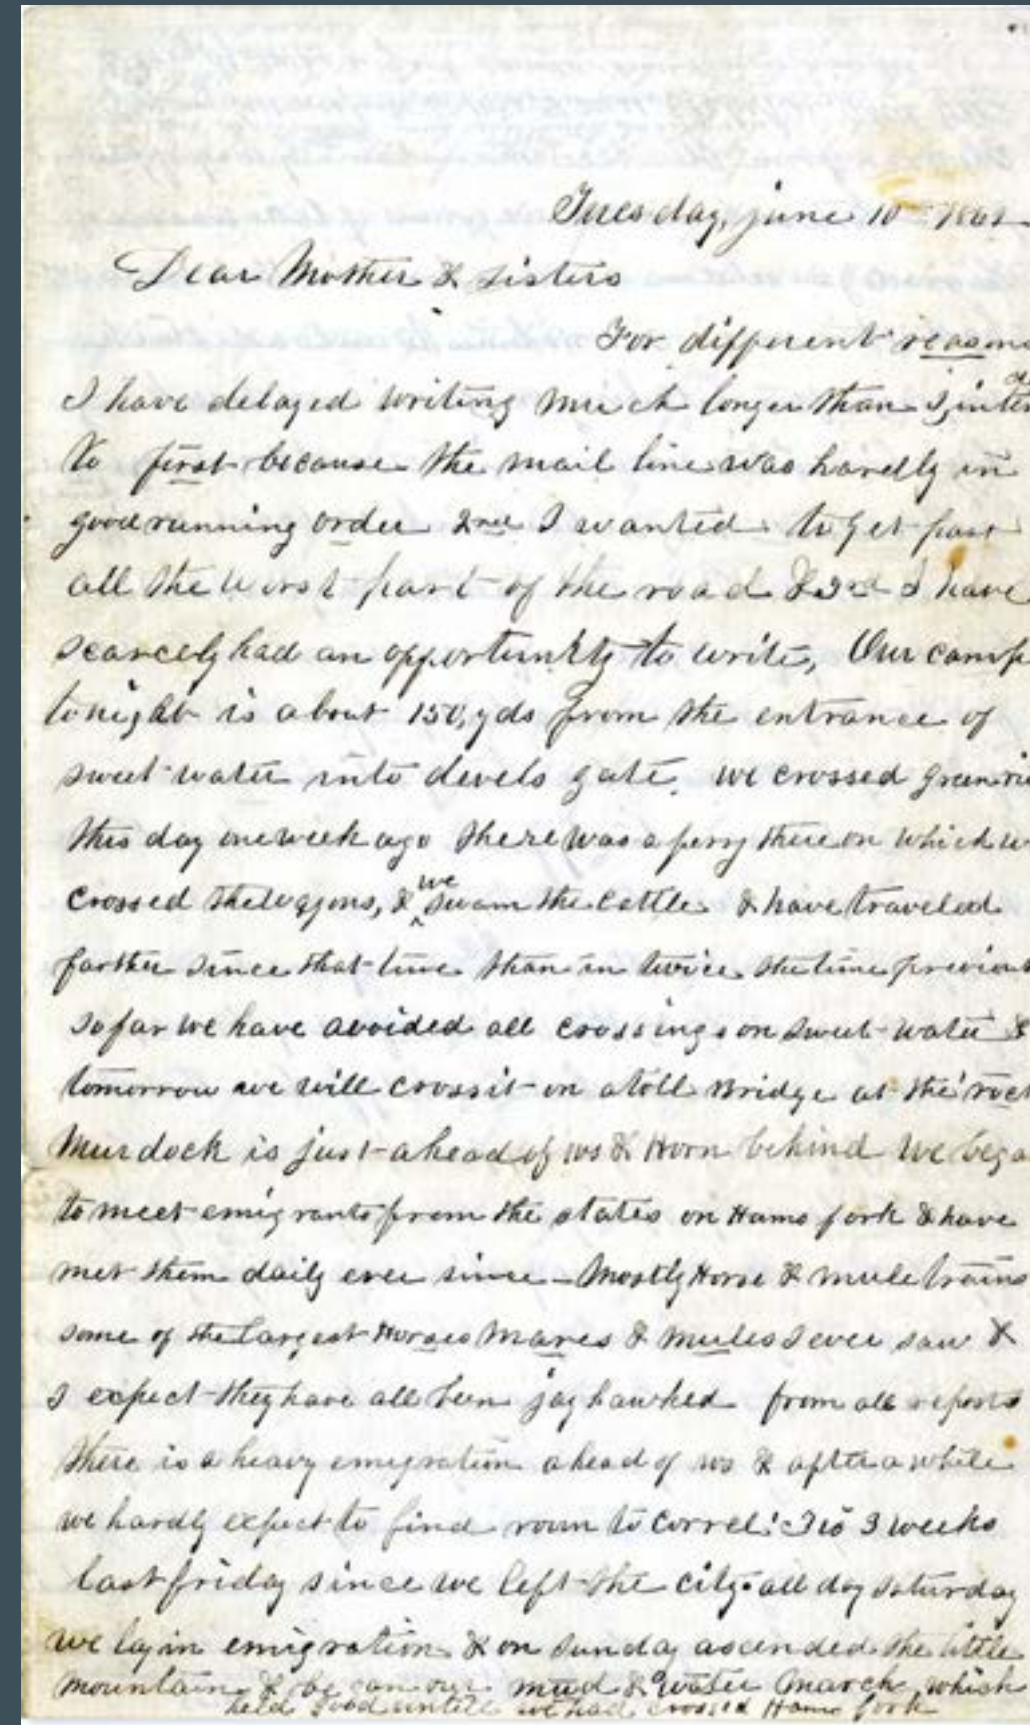 Tuesday, june 10th 1862
Dear Mother & sisters
For different reasons
I have delayed writing much longer than I inten
to first because the mail line was hardly in
good running order 2nd I wanted to get past
all the worst part of the road & 3rd I have
scarcely had an opportunity to write, Our camp
tonight is about 150, yds from the entrance of
sweet water into devels gate. we crossed green riv
this day one week ago there was a ferry there on which w
crossed the waggons, & we swam the cattle & have traveled
farther since that time than in twice the time previous
so far we have avoided all crossings on sweet water &
tomorrow we will cross it on a toll Bridge at the rock
Murdock is just ahead of us & Horn behind We bega
to meet emigrants from the states on Hams fork & have
met them daily ever since - Mostly Horse & mule trains
some of the largest Horses Mares & Mules I ever saw &
I expect they have all been jayhawked from all reports
there is a heavy emigration ahead of us & after a while
we hardly expect to find room to correl. It is 3 weeks
last friday since we left the city. all day saturday
we lay in emigration & on sunday ascended the little
mountain & be can our mud & water march which
held good untill we had crossed Hams fork